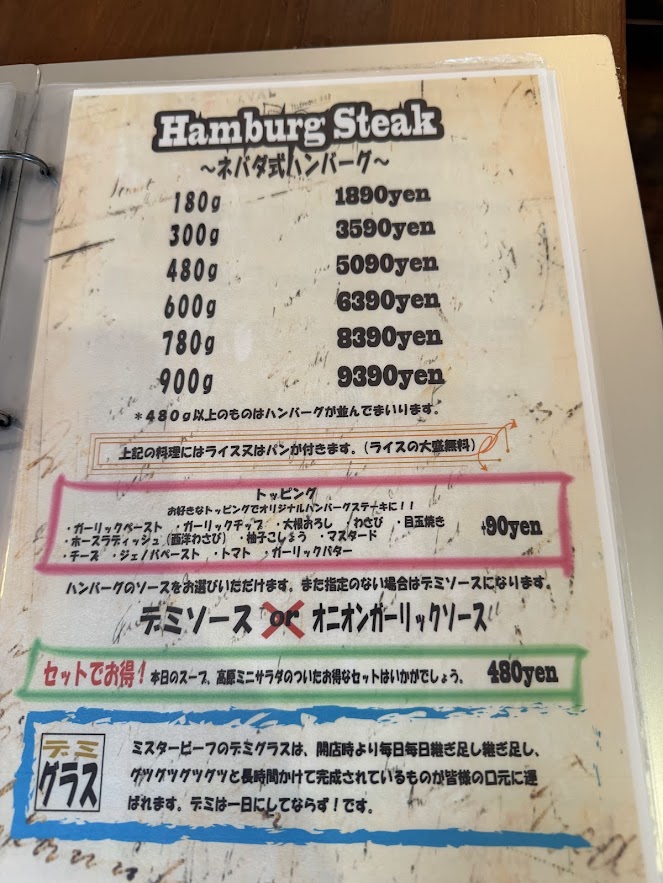 Hamburg Steak
～ネバダ式ハンバーグ～
180g 1890yen
300g 3590yen
480g 5090yen
600g 6390yen
780g 8390yen
900g 9390yen
＊480g以上のものはハンバーグが並んでまいります。
上記の料理にはライス又はパンが付きます。(ライスの大盛無料)
トッピング
お好きなトッピングでオリジナルハンバーグステーキに！！
・ガーリックペースト ・ガーリックチップ ・大根おろし ・わさび ・目玉焼き
・ホースラディッシュ(西洋わさび) ・柚子こしょう ・マスタード
・チーズ ・ジェノバペースト ・トマト ・ガーリックバター
+90yen
ハンバーグのソースをお選びいただけます。また指定のない場合はデミソースになります。
デミソース or オニオンガーリックソース
セットでお得！本日のスープ、高原ミニサラダのついたお得なセットはいかがでしょう。 480yen
デミグラス
ミスタービーフのデミグラスは、開店時より毎日毎日継ぎ足し継ぎ足し、
グツグツグツグツと長時間かけて完成されているものが皆様の口元に運
ばれます。デミは一日にしてならず！です。